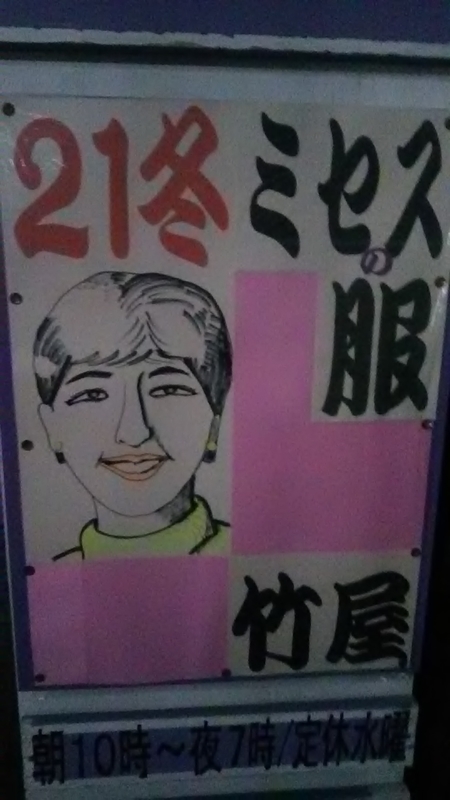 21冬ミセス
の
服
竹屋
朝10時～夜7時/定休水曜